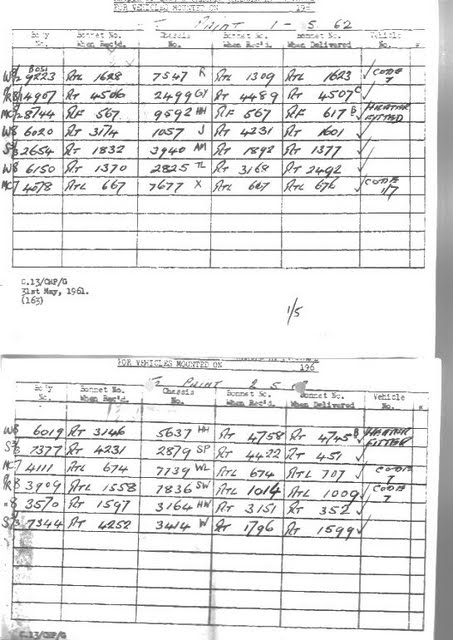 FOR VEHICLES MOUNTED ON 196
To PAINT 1-5 62
Body No. Bonnet No. When Rec'd. Chassis No. Bonnet No. When Rec'd. Bonnet No. When Delivered Vehicle No.
9223 RTL 1628 7547 R RTL 1309 RTL 1623 ✓ CODE 7
4907 RT 4506 2499 GY RT 4489 RT 4507 C ✓
8744 RF 567 9592 HH RF 567 RF 617 B ✓ HEATER FITTED
W8 6020 RT 3174 1057 J RT 4231 RT 1601 ✓
2654 RT 1832 3940 AM RT 1892 RT 1377 ✓
W8 6150 RT 1370 2825 TL RT 3168 RT 2492 ✓
MC7 4078 RTL 667 7677 X RTL 667 RTL 676 ✓ CODE 1/7
C.13/CMF/G
31st May, 1961.
(163)
1/5
FOR VEHICLES MOUNTED ON 196
To PAINT 2 5
Body No. Bonnet No. When Rec'd. Chassis No. Bonnet No. When Rec'd. Bonnet No. When Delivered Vehicle No.
W8 6019 RT 3146 5637 HH RT 4758 RT 4745 B ✓ HEATER FITTED
7377 RT 4231 2879 SP RT 4422 RT 451 ✓
MC7 4111 RTL 674 7739 WL RTL 674 RTL 707 ✓ CODE 7
3909 RTL 1558 7836 SW RTL 1014 RTL 1009 ✓ CODE 7
3570 RT 1597 3164 HW RT 3151 RT 352 ✓
7344 RT 4252 3414 W RT 1796 RT 1599 ✓
C.13/CMF/G